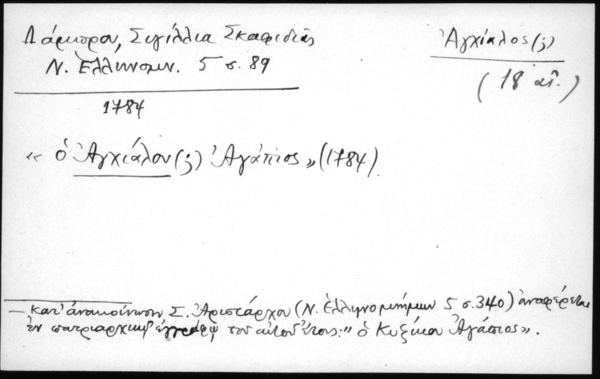 Λάμπρου, Σιγίλλια Σκαφιδιᾶς
Ν. Ἑλληνομν. 5 σ. 89
Ἀγχίαλος (;)
(18 αἰ.)
1784
« ὁ Ἀγχιάλου (;) Ἀγάπιος » (1784).
— κατ' ἀνακοίνωσιν Σ. Ἀριστάρχου (Ν. Ἑλληνομνήμων 5 σ. 340) ἀναφέρεται
ἐν πατριαρχικῷ ἐγγράφῳ τοῦ αὐτοῦ ἔτους: " ὁ Κυζίκου Ἀγάπιος ».